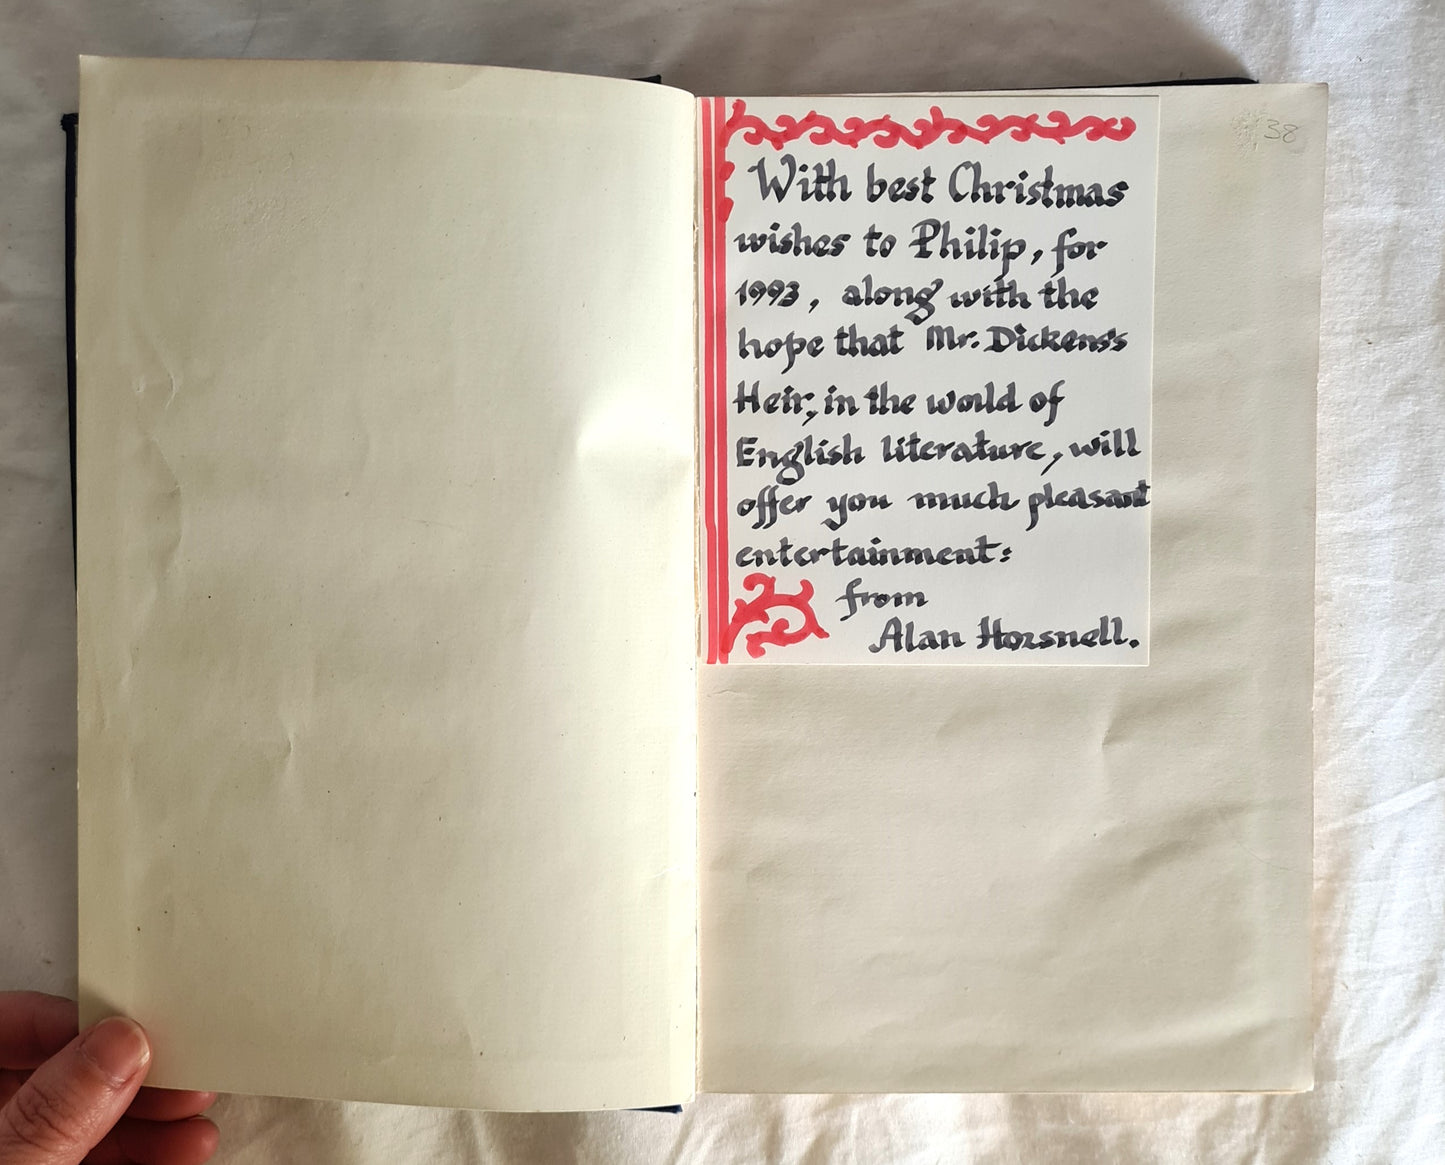 With best Christmas
wishes to Philip, for
1993, along with the
hope that Mr. Dickens's
Heir, in the world of
English literature, will
offer you much pleasant
entertainment:
from
Alan Horsnell.
38